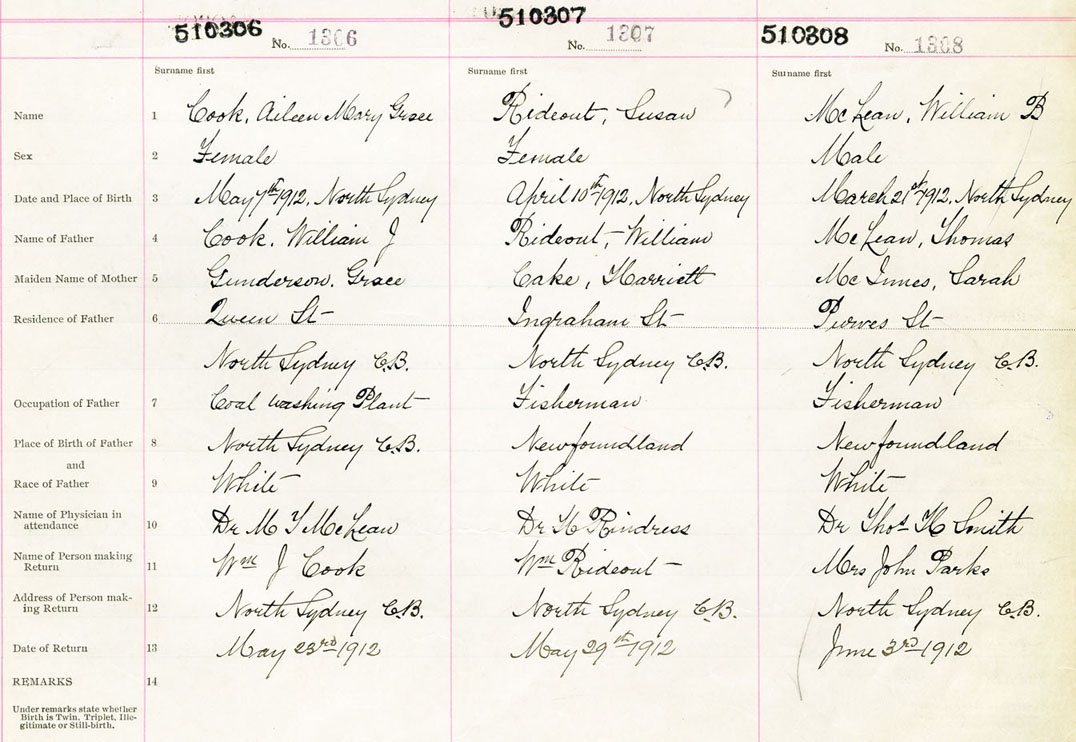 510306 No. 1306 510307 No. 1307 510308 No. 1308
Surname first Surname first Surname first
Name 1 Cook, Aileen Mary Grace Rideout, Susan McLean, William B
Sex 2 Female Female Male
Date and Place of Birth 3 May 7th 1912, North Sydney April 10th 1912, North Sydney March 21st 1912, North Sydney
Name of Father 4 Cook, William J Rideout, William McLean, Thomas
Maiden Name of Mother 5 Gunderson, Grace Cake, Harriett McInnes, Sarah
Residence of Father 6 Queen St Ingraham St Purves St
North Sydney C.B. North Sydney C.B. North Sydney C.B.
Occupation of Father 7 Coal washing Plant Fisherman Fisherman
Place of Birth of Father 8 North Sydney C.B. Newfoundland Newfoundland
and
Race of Father 9 White White White
Name of Physician in
attendance 10 Dr M McLean Dr H Rindress Dr Thos H Smith
Name of Person making
Return 11 Wm J Cook Wm Rideout Mrs John Parks
Address of Person mak-
ing Return 12 North Sydney C.B. North Sydney C.B. North Sydney C.B.
Date of Return 13 May 23rd 1912 May 29th 1912 June 3rd 1912
REMARKS 14
Under remarks state whether
Birth is Twin, Triplet, Ille-
gitimate or Still-birth.